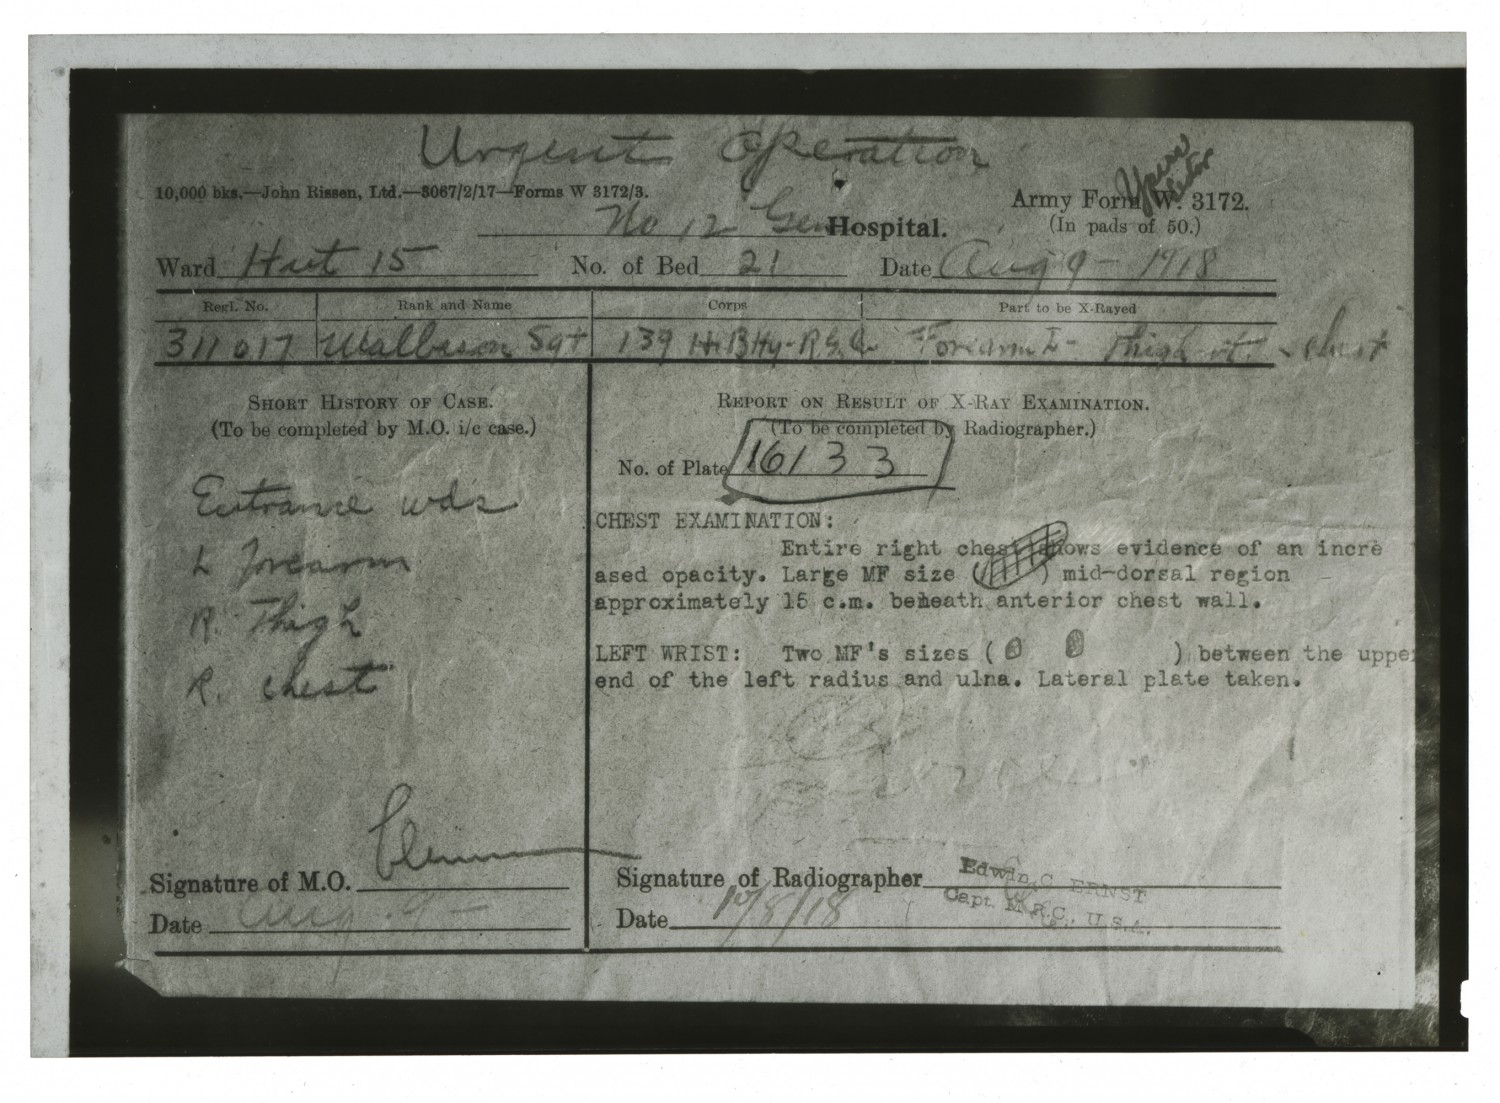 Urgent Operation
10,000 bks.—John Rissen, Ltd.—8067/2/17—Forms W 3172/3.
Army Form W. 3172.
(In pads of 50.)
No 12 Gen Hospital.
Ward Hut 15 No. of Bed 21 Date Aug 9 - 1918
Regl. No. Rank and Name Corps Part to be X-Rayed
311017 Sgt 139 H.Bty-R.G.A. Forearm L - Thigh rt. - chest
SHORT HISTORY OF CASE.
(To be completed by M.O. i/c case.)
Entrance wds
L forearm
R. Thigh
R. chest
Signature of M.O.
Date Aug. 9 -
REPORT ON RESULT OF X-RAY EXAMINATION.
(To be completed by Radiographer.)
No. of Plate 16133
CHEST EXAMINATION:
Entire right chest shows evidence of an incre
ased opacity. Large MF size ( ) mid-dorsal region
approximately 15 c.m. beneath anterior chest wall.
LEFT WRIST: Two MF's sizes ( ) between the upper
end of the left radius and ulna. Lateral plate taken.
Signature of Radiographer Edwin C ERNST
Capt. M.R.C., U.S.A.
Date 10/8/18